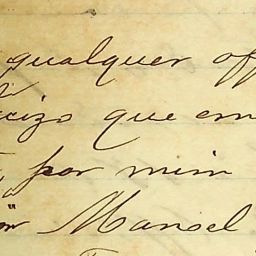 qualquer off
cizo que em
por mim
Manoel